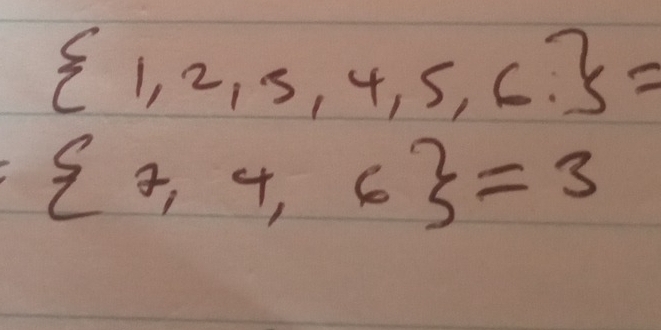 { 1, 2, 3, 4, 5, 6 } =
= { 7, 4, 6 } = 3